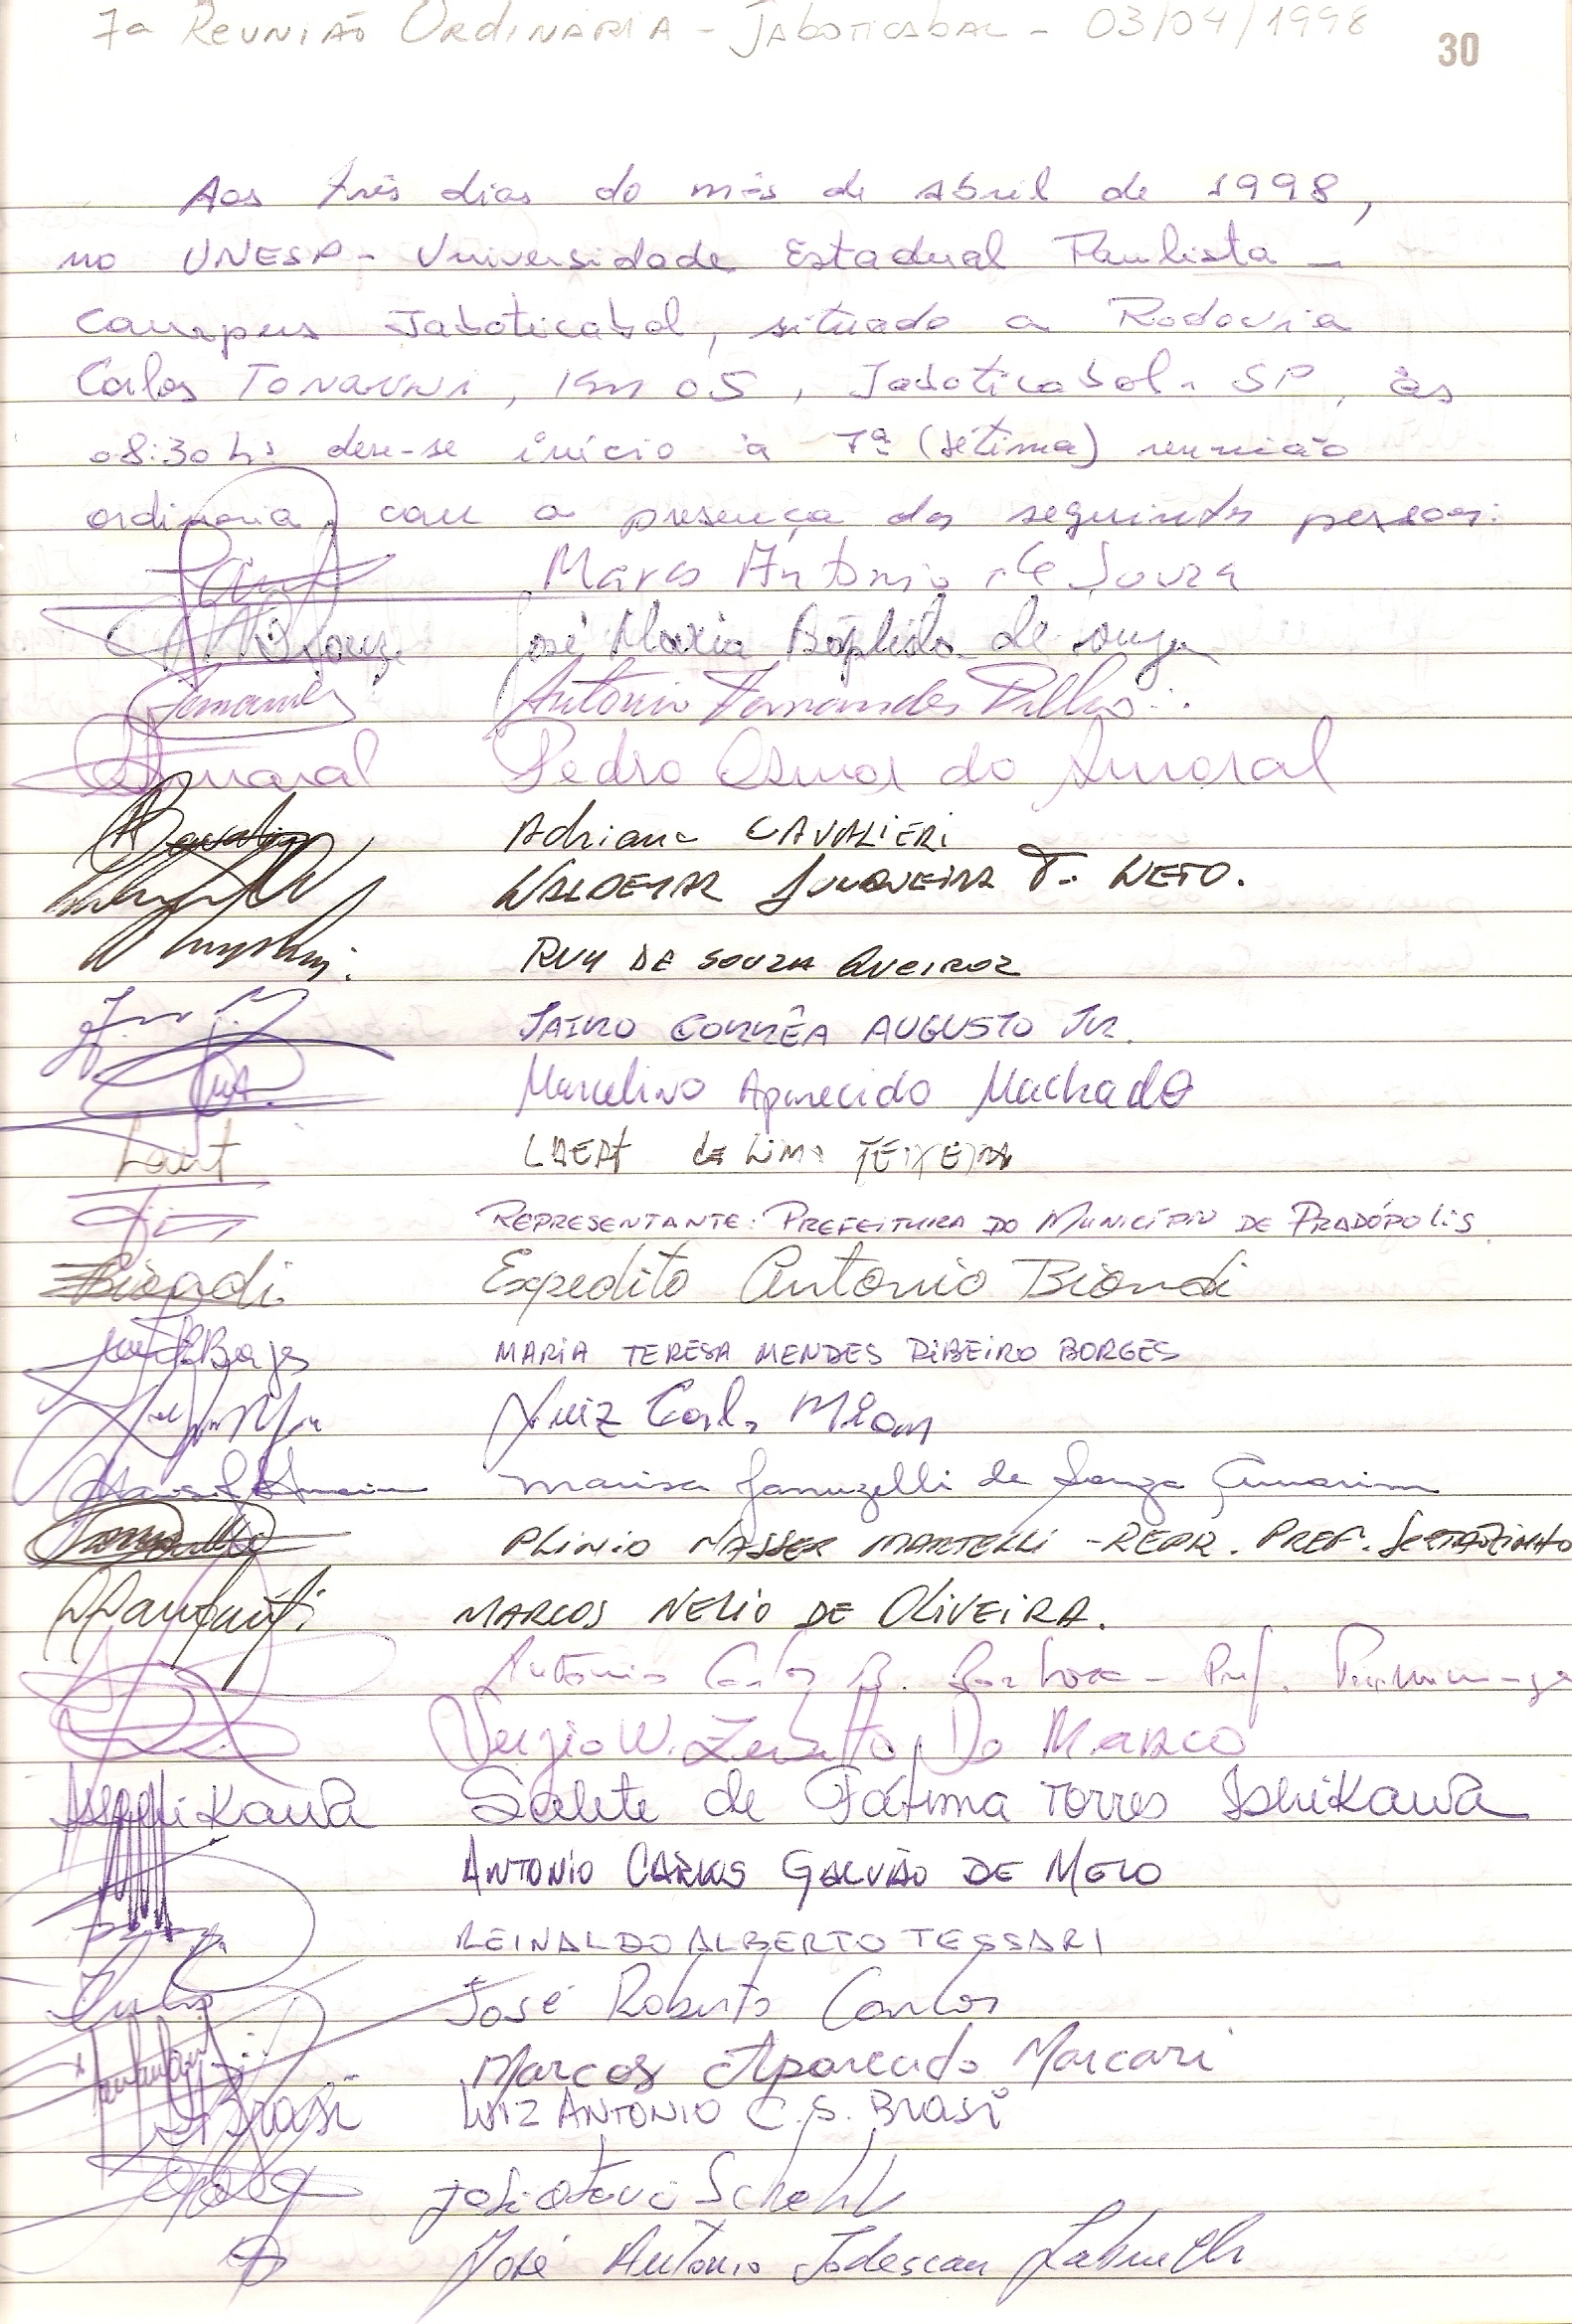 7ª REUNIÃO ORDINÁRIA - JABOTICABAL - 03/04/1998
30
Aos três dias do mês de abril de 1998,
na UNESP - Universidade Estadual Paulista -
Campus Jaboticabal, situado a Rodovia
Carlos Tonanni, Km 05, Jaboticabal - SP, às
08:30 hs deu-se início a 7ª (sétima) reunião
ordinaria, com a presença das seguintes pessoas:
Marco Antonio de Souza
José Maria Baptista de Souza
Fernandes Antonio Fernandes Filho
Amaral Pedro Osmar do Amaral
Adriana CAVALIERI
WALDEMAR JUNQUEIRA F. NETO.
RUY DE SOUZA QUEIROZ
JAIRO CORRÊA AUGUSTO JR.
Marcelino Aparecido Machado
Laert LAERT de LIMA TEIXEIRA
REPRESENTANTE: PREFEITURA DO MUNICÍPIO DE PRADÓPOLIS
Biondi. Expedito Antonio Biondi
Borges MARIA TERESA MENDES RIBEIRO BORGES
Luiz Carlos
Marisa de Souza Amorim
PLINIO NASSER MARTELLI - REPR. PREF. SERTÃOZINHO
MARCOS NELIO DE OLIVEIRA.
Antonio Carlos B. Barbosa - Pref.
Sergio W. De MARCO
Ishikawa Salete de Fátima Torres Ishikawa
ANTONIO CARLOS GALVÃO DE MELO
REINALDO ALBERTO TESSARI
José Roberto Carlos
Marcos Aparecido Marcari
Brasi LUIZ ANTONIO C. S. BRASI
José
José Antonio